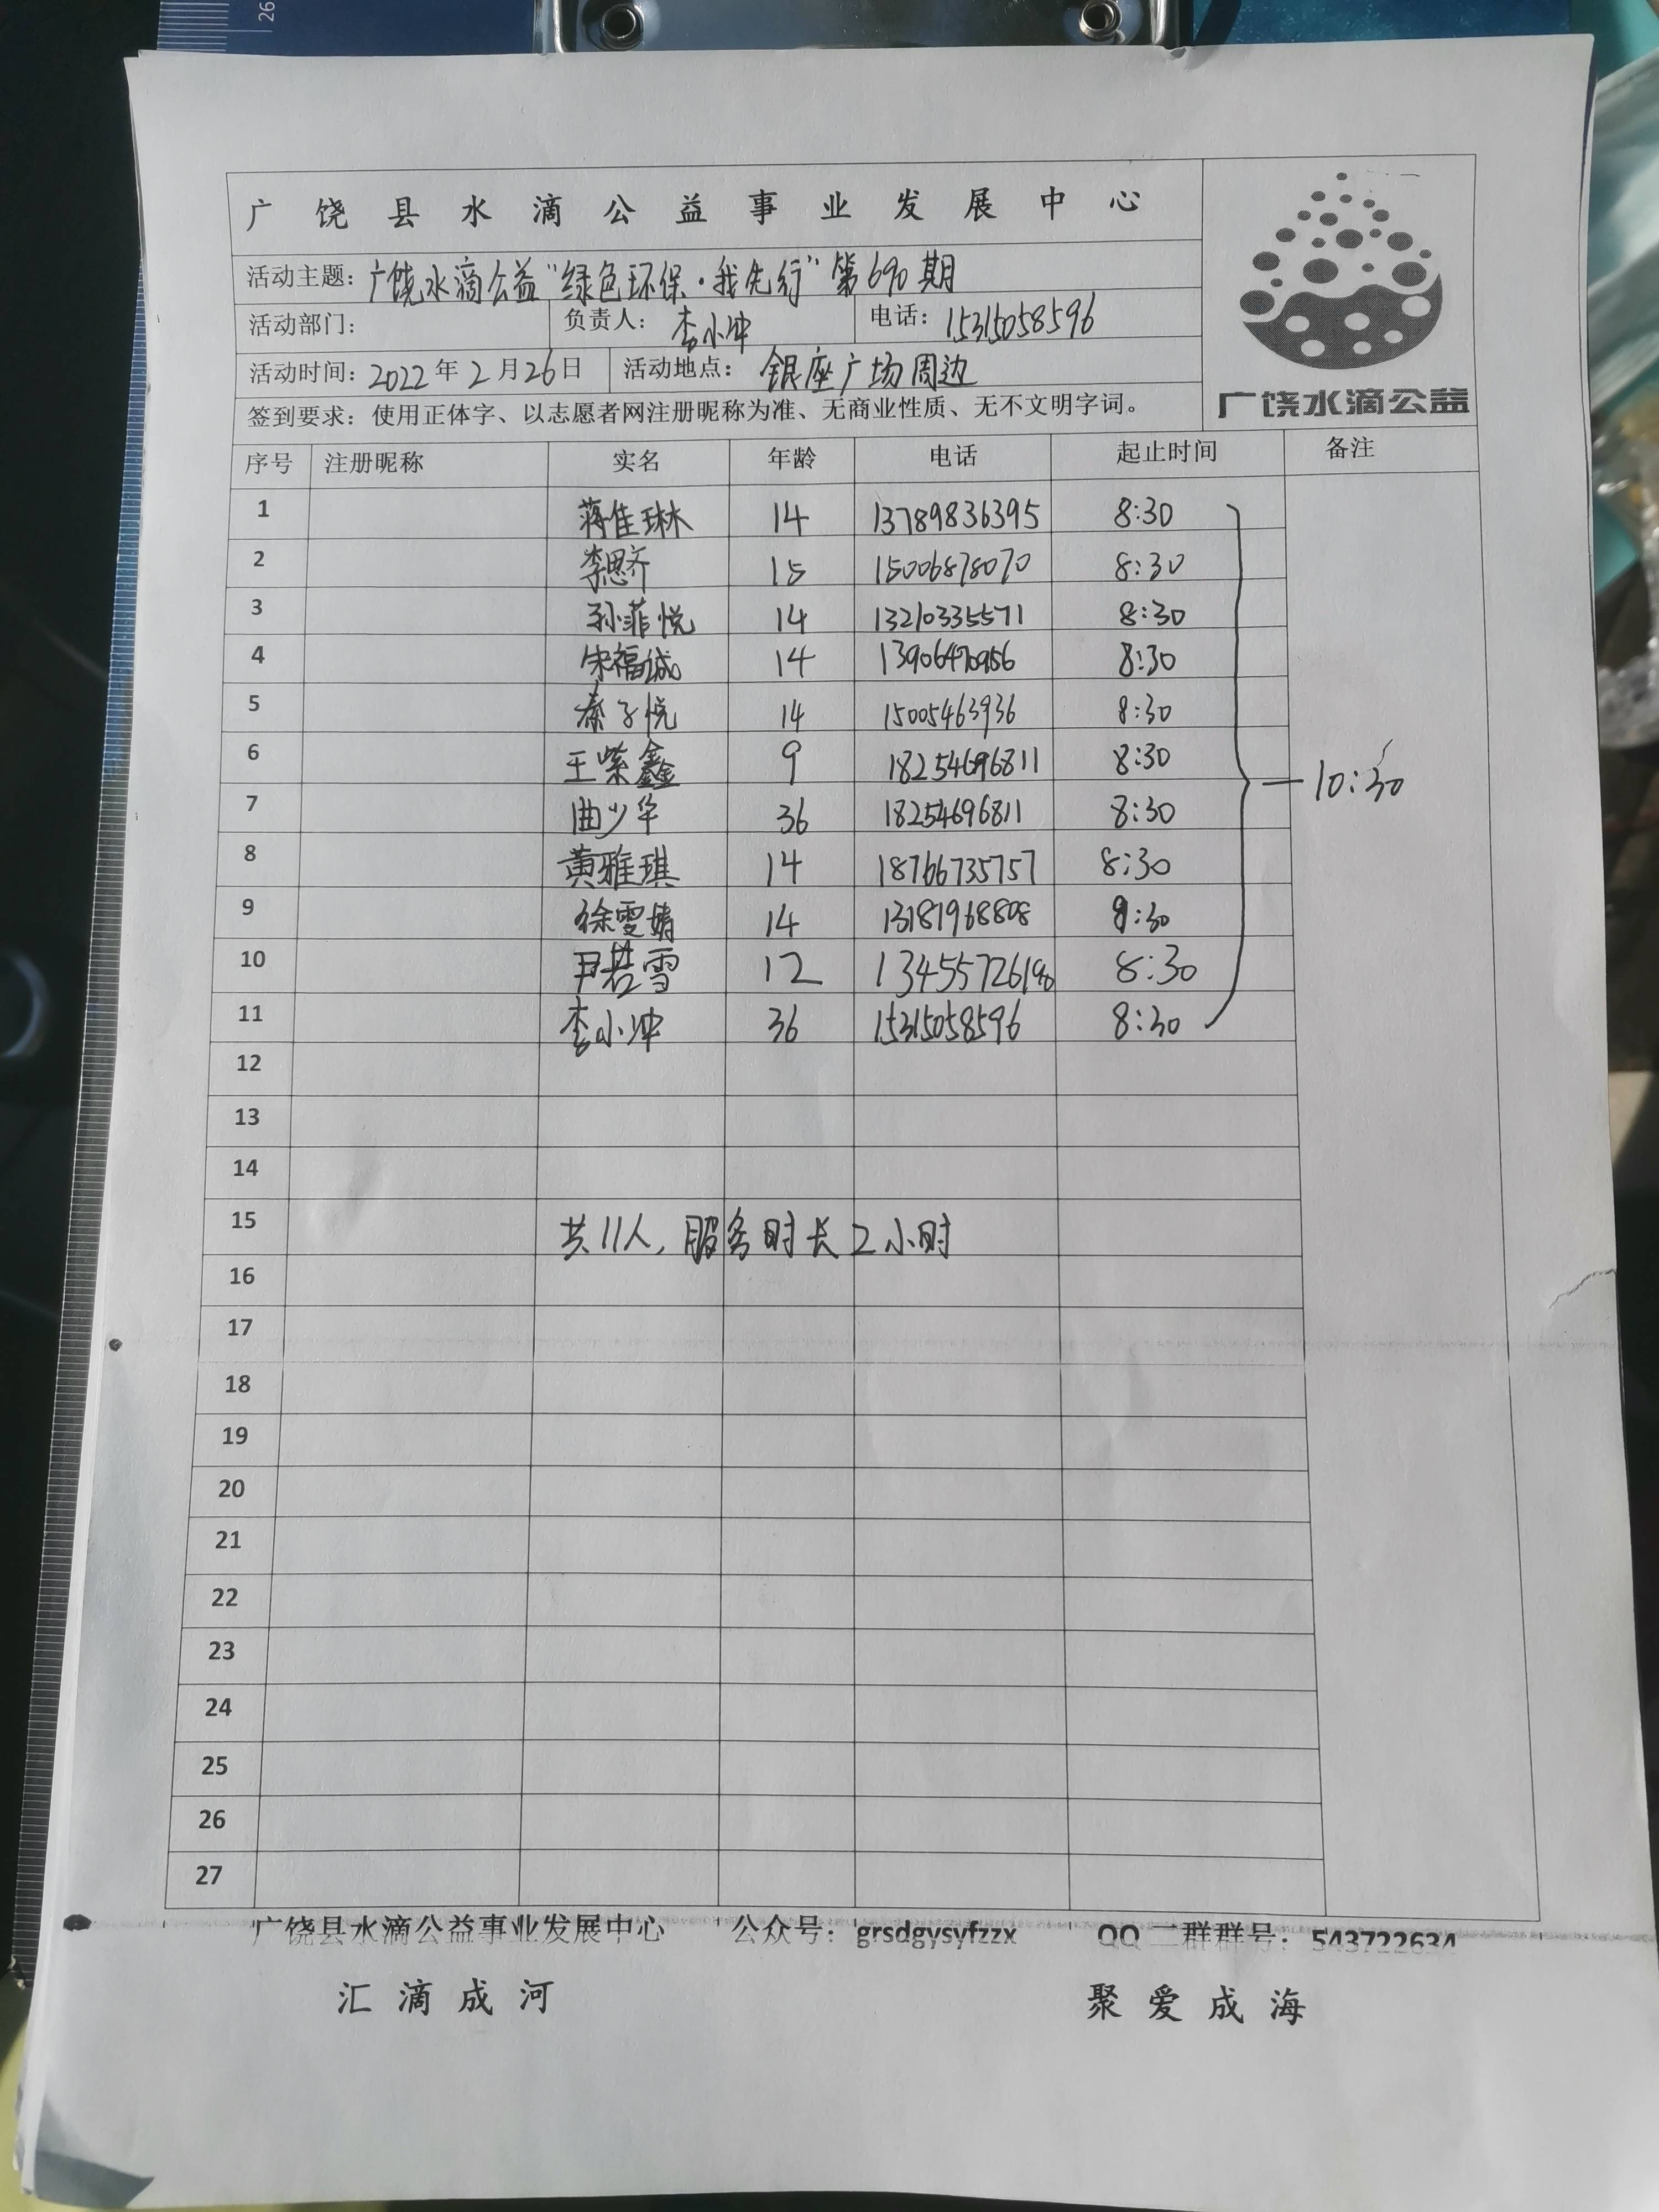 26
广饶县水滴公益事业发展中心
活动主题：广饶水滴公益“绿色环保·我先行”第690期
活动部门： 负责人：李小冲 电话：15315058596
活动时间：2022年2月26日 活动地点：银座广场周边
广饶水滴公益
签到要求：使用正体字、以志愿者网注册昵称为准、无商业性质、无不文明字词。
序号 注册昵称 实名 年龄 电话 起止时间 备注
1 蒋佳琳 14 13789836395 8:30
2 李思齐 15 15006878070 8:30
3 孙菲悦 14 13210335571 8:30
4 宋福诚 14 13906470956 8:30
5 秦子悦 14 15005463936 8:30
6 王紫鑫 9 18254696811 8:30
10:30
7 曲少华 36 18254696811 8:30
8 黄雅琪 14 18766735757 8:30
9 徐雯婧 14 13181968808 8:30
10 尹若雪 12 8:30
11 李小冲 36 15315058596 8:30
12
13
14
15 共11人，服务时长2小时
16
17
18
19
20
21
22
23
24
25
26
27
广饶县水滴公益事业发展中心 公众号：grsdgysyfzzx QQ二群群号：543722634
汇滴成河 聚爱成海